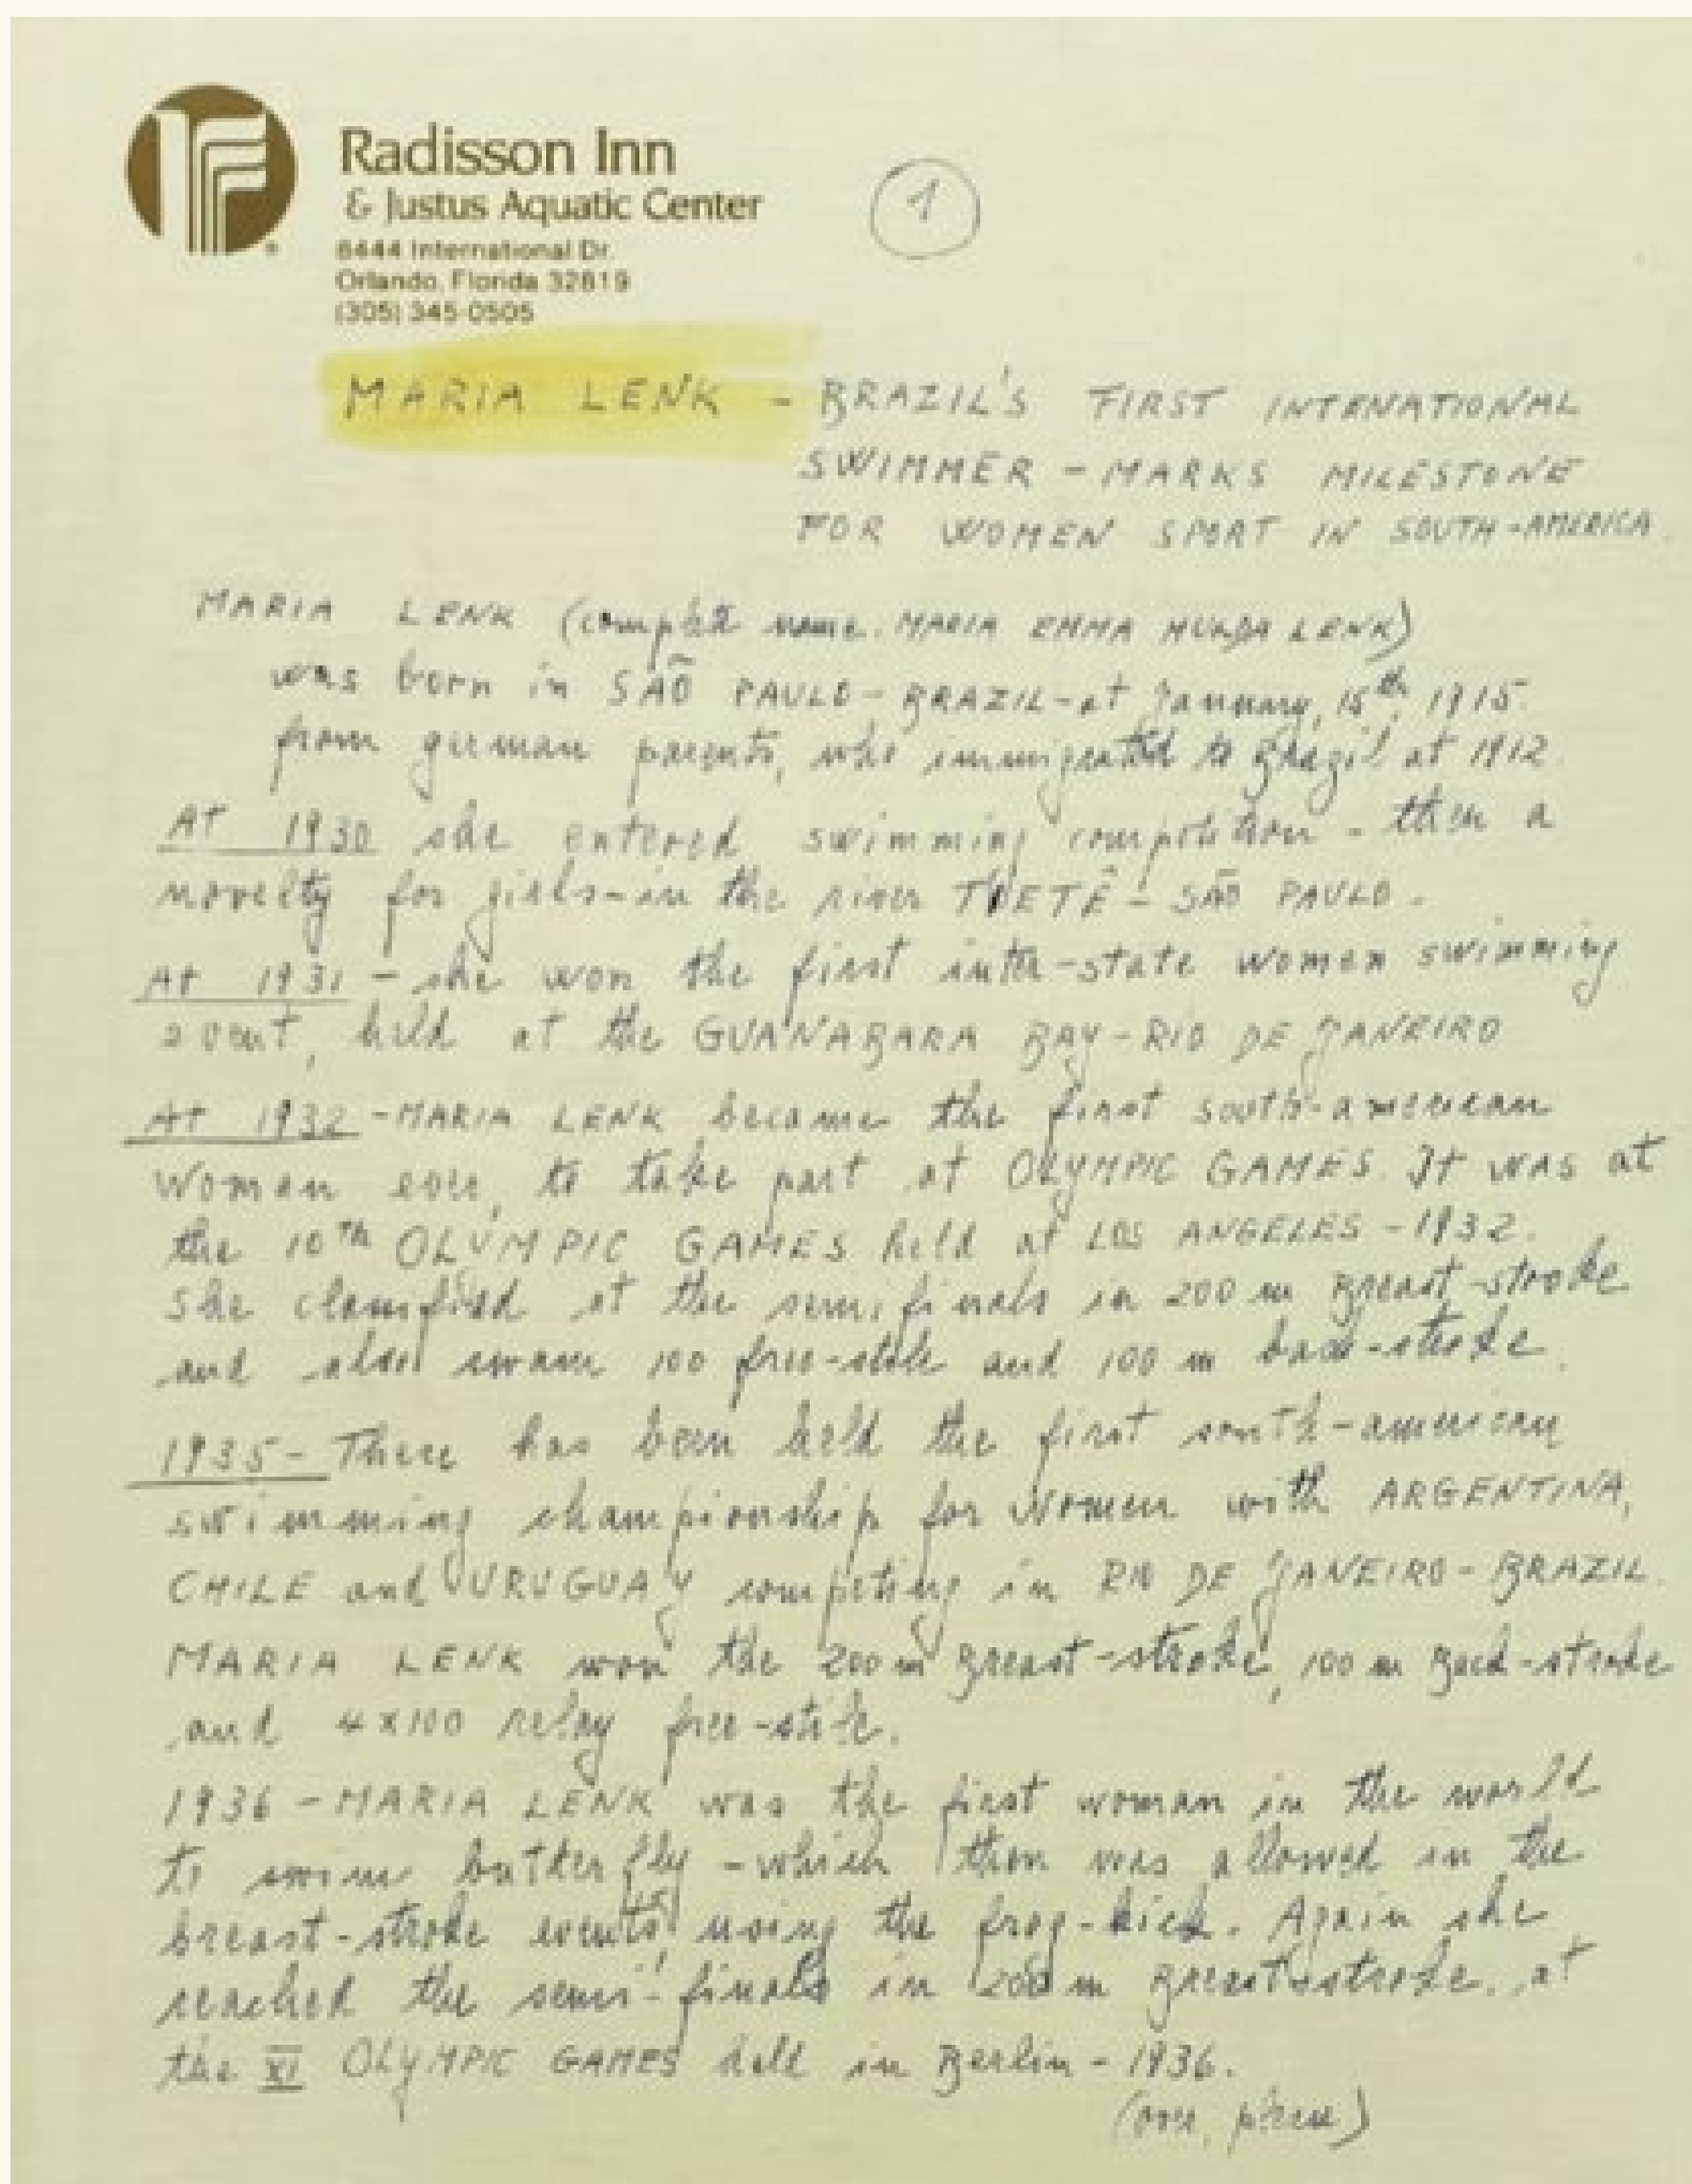 Radisson Inn
& Justus Aquatic Center
8444 International Dr.
Orlando, Florida 32819
(305) 345-0505
1
MARIA LENK - BRAZIL'S FIRST INTENATIONAL
SWIMMER - MARKS MILESTONE
FOR WOMEN SPORT IN SOUTH-AMERICA.
MARIA LENK (complete name. MARIA EMMA HULDA LENK)
was born in SÃO PAULO - BRAZIL - at January, 15th, 1915.
from german parents, who immigrated to Brazil at 1912.
At 1930 she entered swimming competition - then a
novelty for girls - in the river TIETÊ - SÃO PAULO.
At 1931 - she won the first inter-state women swimming
event, held at the GUANABARA BAY - RIO DE JANEIRO
At 1932 - MARIA LENK became the first south-american
Women ever, to take part at OLYMPIC GAMES. It was at
the 10th OLYMPIC GAMES held at LOS ANGELES - 1932.
She classified at the semi finals in 200 m Breast-stroke
and also swam 100 free-stile and 100 m back-stroke.
1935 - There has been held the first south-american
swimming championship for women with ARGENTINA,
CHILE and URUGUAY competing in RIO DE JANEIRO - BRAZIL.
MARIA LENK won the 200 m Breast-stroke, 100 m Back-stroke
and 4x100 relay free-stile.
1936 - MARIA LENK was the first woman in the world
to swim butterfly - which then was allowed in the
breast-stroke events, using the frog-kick. Again she
reached the semi-finals in 200 m Breast-stroke, at
the XI OLYMPIC GAMES held in Berlin - 1936.
(over, please)